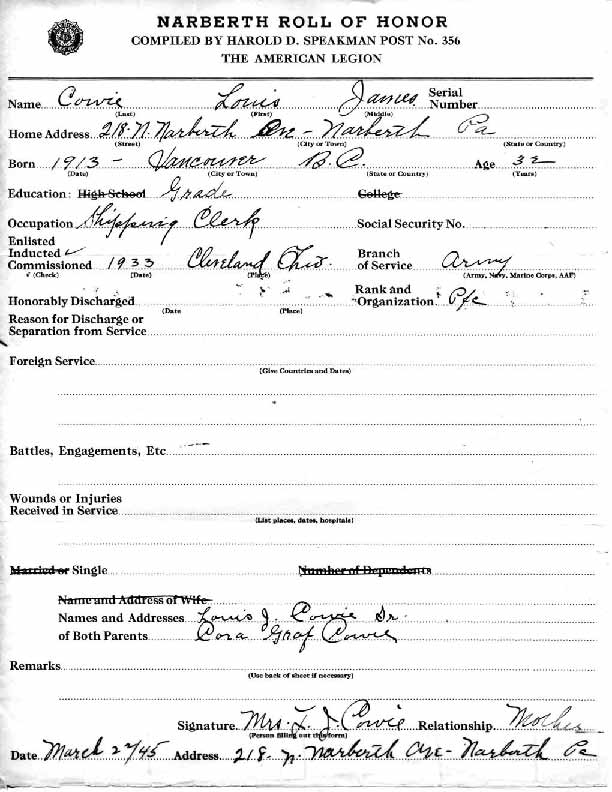 NARBERTH ROLL OF HONOR
COMPILED BY HAROLD D. SPEAKMAN POST No. 356
THE AMERICAN LEGION
Name Cowie Louis James Serial Number
(Last) (First) (Middle)
Home Address 218 N. Narberth Ave - Narberth Pa
(Street) (City or Town) (State or Country)
Born 1913 - Vancouver B.C. Age 32
(Date) (City or Town) (State or Country) (Years)
Education: High School Grade College
Occupation Shipping Clerk Social Security No.
Enlisted
Inducted ✓ Branch
Commissioned 1933 Cleveland Ohio. of Service Army
√ (Check) (Date) (Place) (Army, Navy, Marine Corps, AAF)
Honorably Discharged Rank and Organization Pfc
(Date (Place)
Reason for Discharge or
Separation from Service
Foreign Service
(Give Countries and Dates)
Battles, Engagements, Etc.
Wounds or Injuries
Received in Service
(List places, dates, hospitals)
Married or Single Number of Dependents
Name and Address of Wife
Names and Addresses Louis J. Cowie Sr.
of Both Parents Cora Graf Cowie
Remarks
(Use back of sheet if necessary)
Signature Mrs. L. J. Cowie Relationship Mother
(Person filling out this form)
Date March 27/45 Address 218 N. Narberth Ave - Narberth Pa